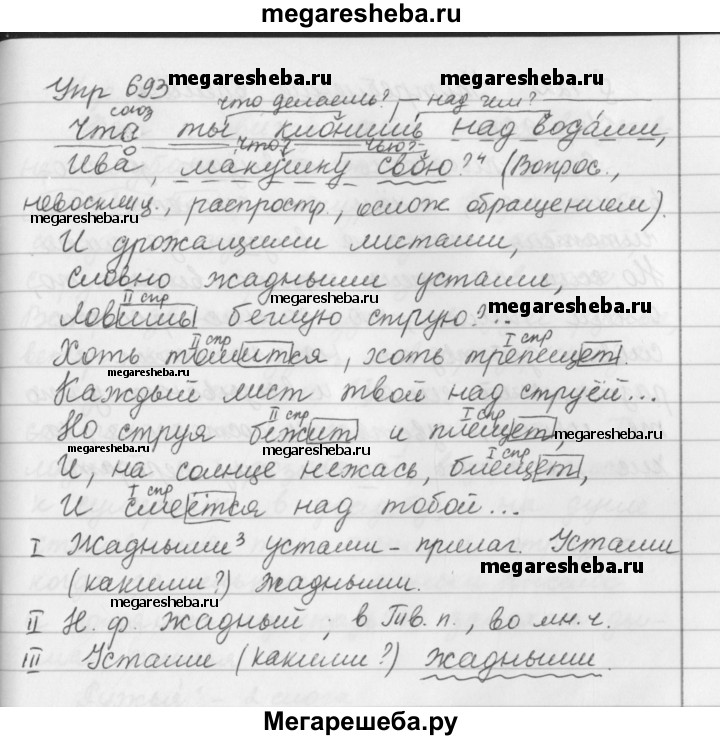 megaresheba.ru
Упр 693 megaresheba.ru megaresheba.ru
союз что делаешь? над чем?
Что ты клонишь над водами,
что? чью?
Ива, макушку свою?⁴ (Вопрос.,
невосклиц., распростр., ослож. обращением).
megaresheba.ru
И дрожащими листами,
Словно жадными устами,
II спр megaresheba.ru megaresheba.ru
Ловишь беглую струю?..
II спр I спр
Хоть томится, хоть трепещет
megaresheba.ru
Каждый лист твой над струёй...
II спр I спр
Но струя бежит и плещет,
megaresheba.ru megaresheba.ru I спр
И, на солнце нежась, блещет,
I спр
И смеётся над тобой...
I Жадными³ устами – прилаг. Устами
(какими?) жадными. megaresheba.ru
megaresheba.ru
II Н. ф. жадный; в Тв. п., во мн. ч.
III Устами (какими?) жадными.
megaresheba.ru
Мегарешеба.ру